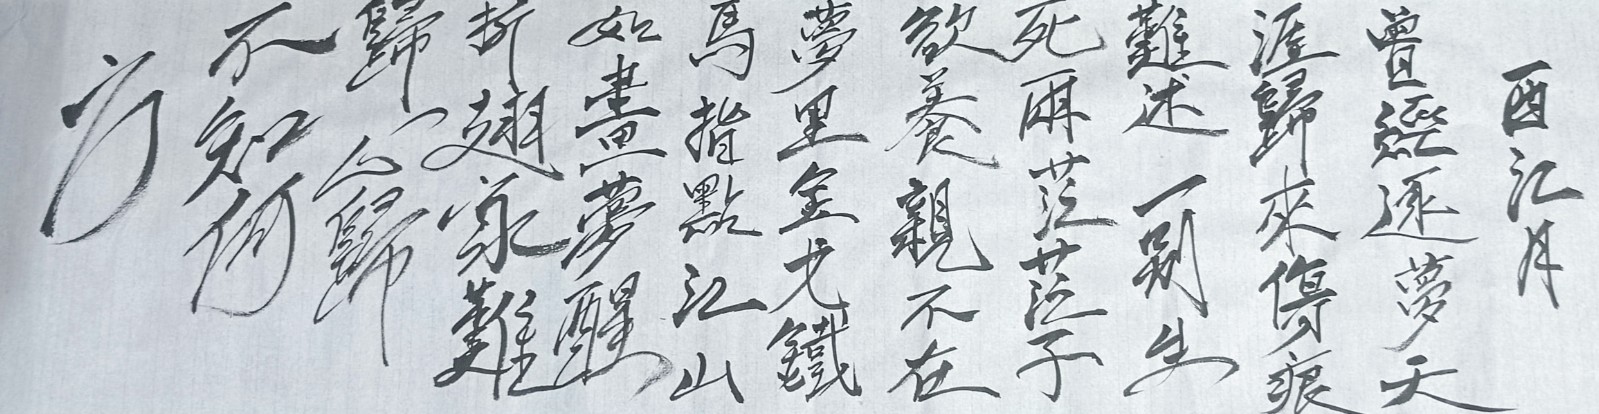 酉江月
曾經逐夢天
涯歸來傷痕
難述一別生
死兩茫茫子
欲養親不在
夢里金戈鐵
馬指點江山
如畫夢醒
折翅家難
歸心歸
不知何
方